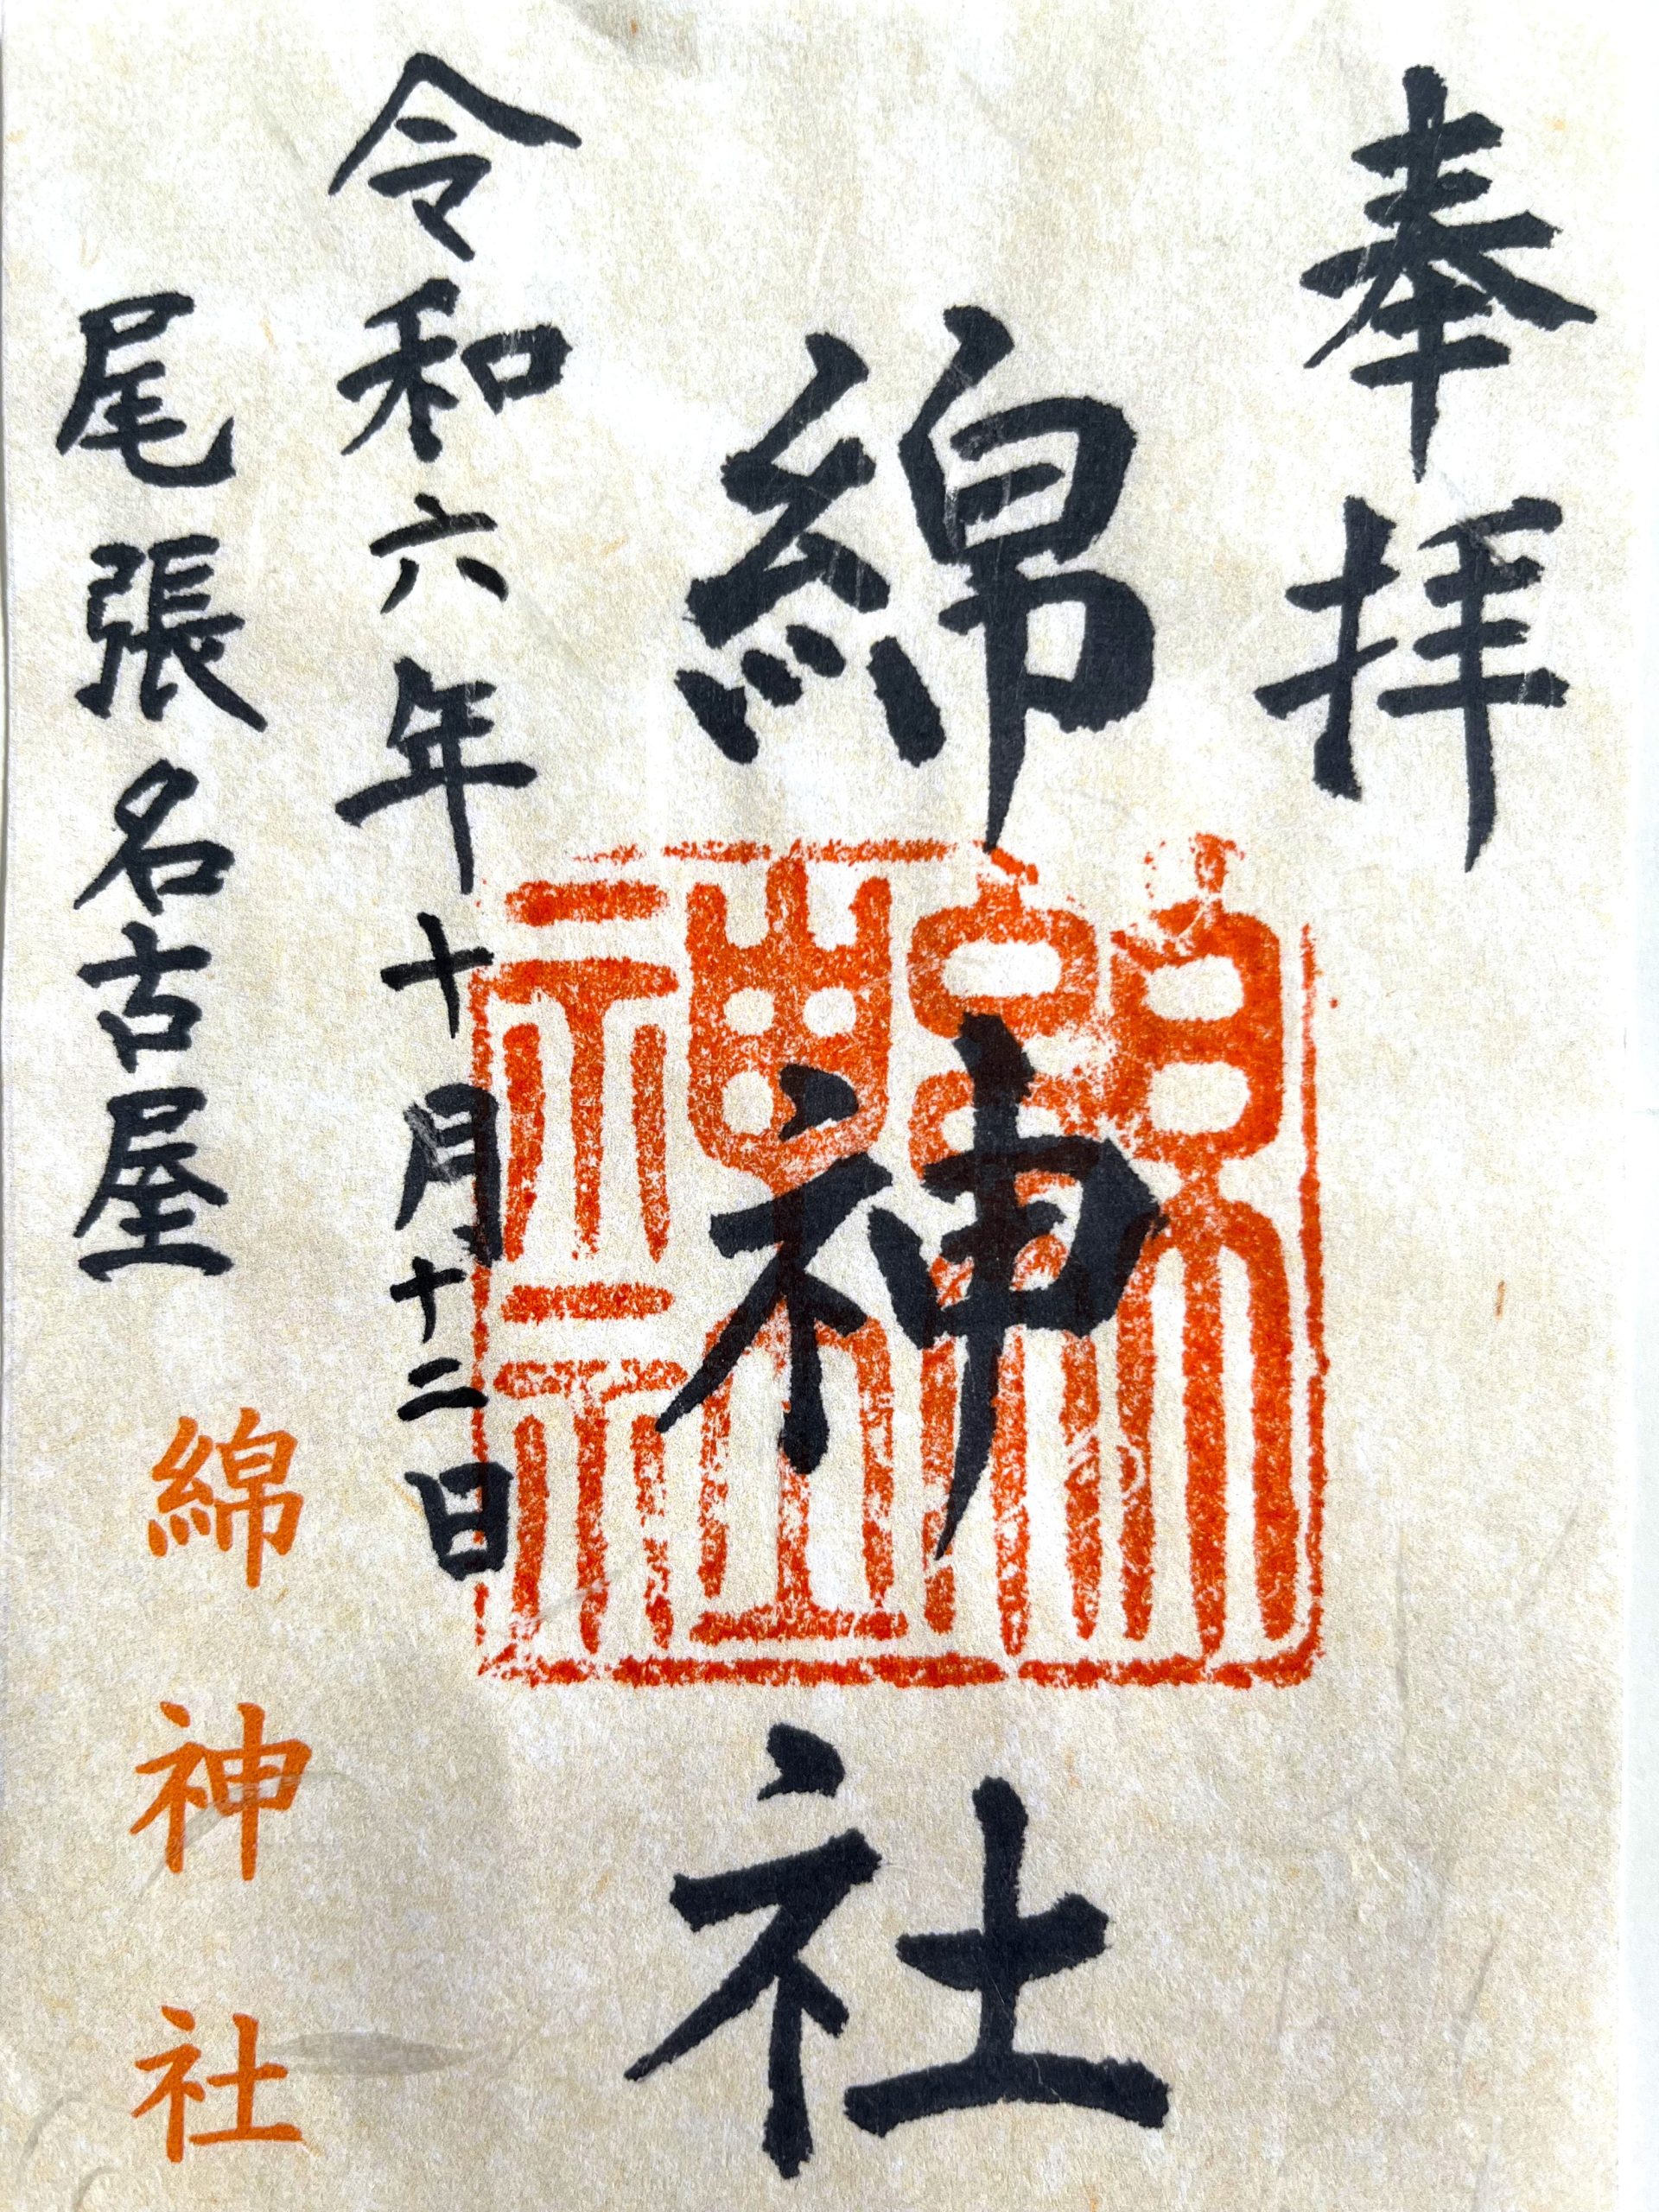 奉拝
綿神社
綿神社
令和六年十月十二日
尾張名古屋
綿神社